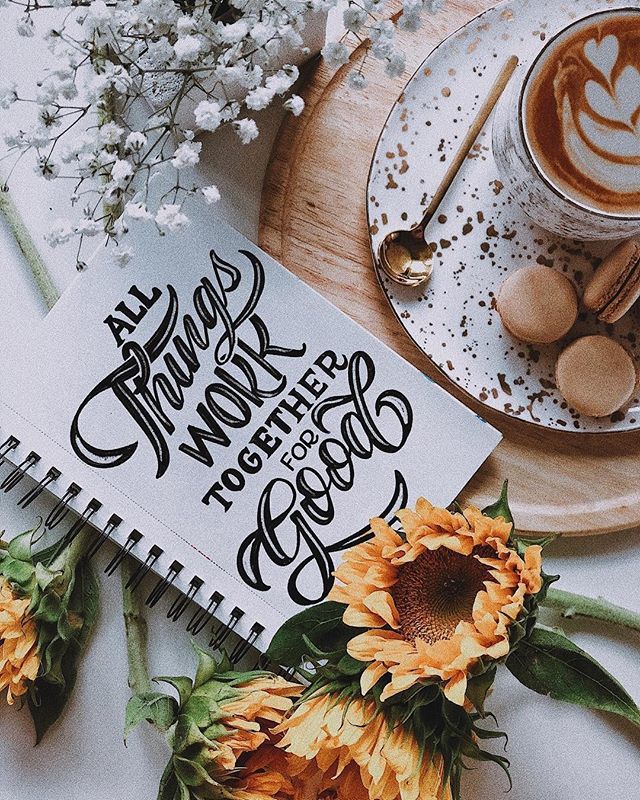 ALL
Things
WORK
TOGETHER
FOR
Good